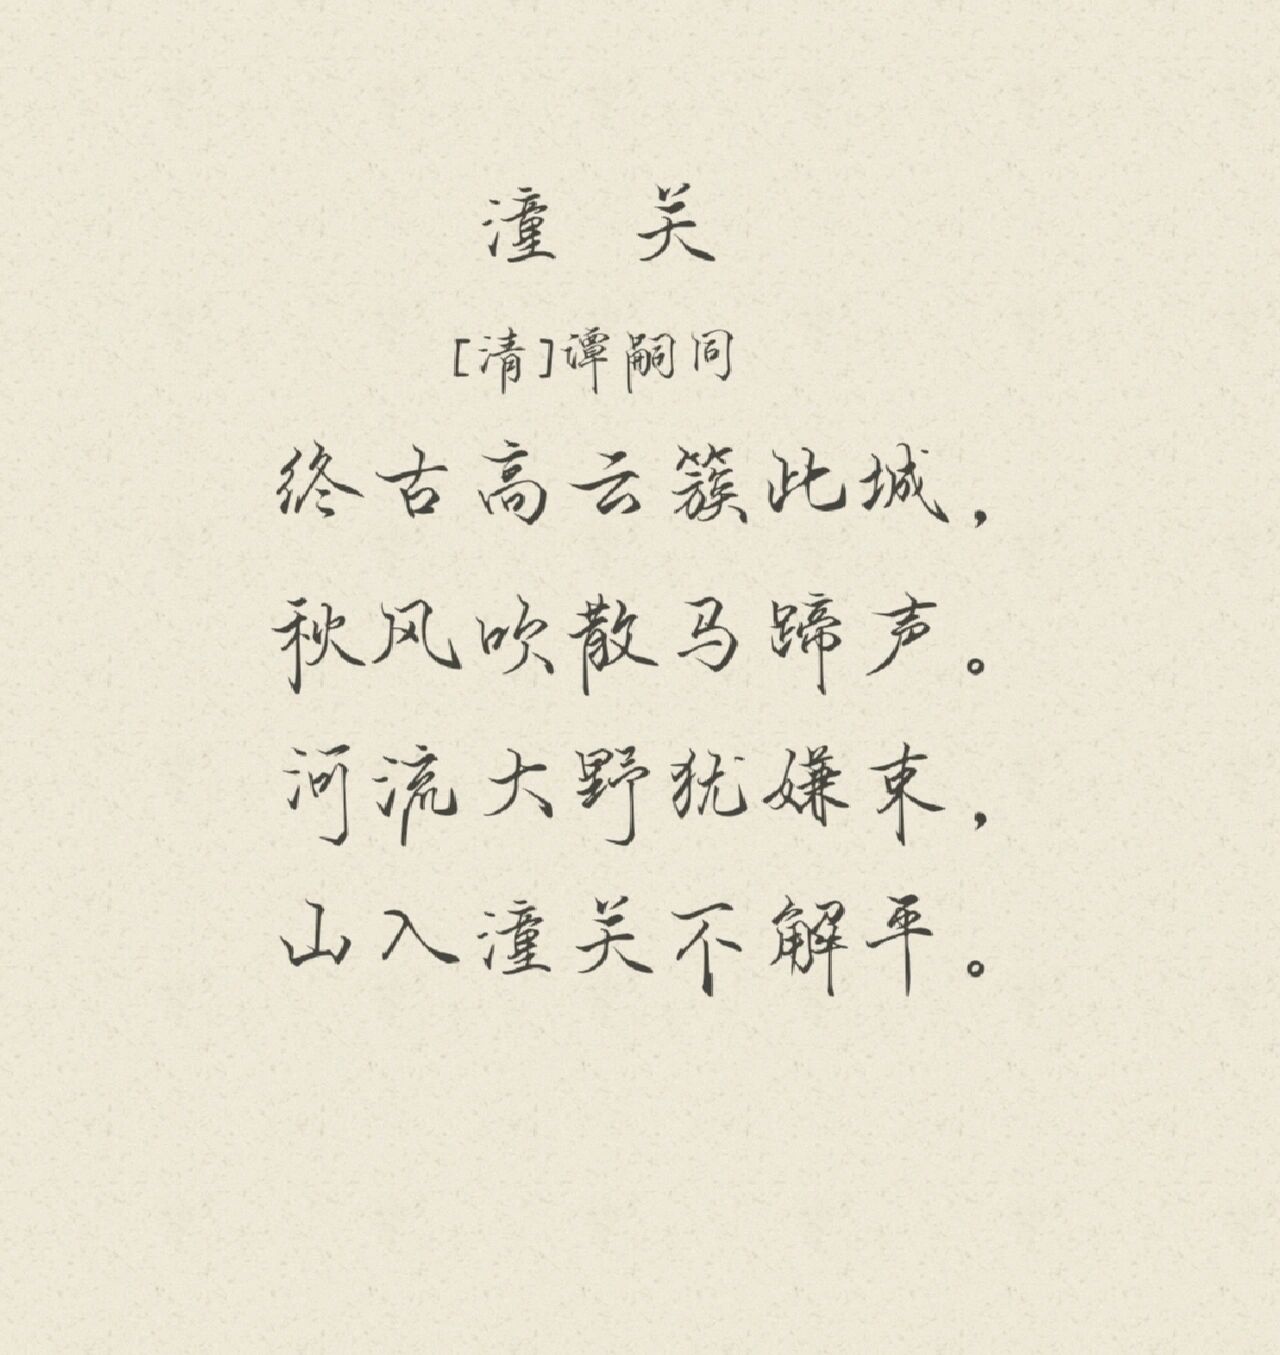 潼 关
[清]谭嗣同
终古高云簇此城，
秋风吹散马蹄声。
河流大野犹嫌束，
山入潼关不解平。